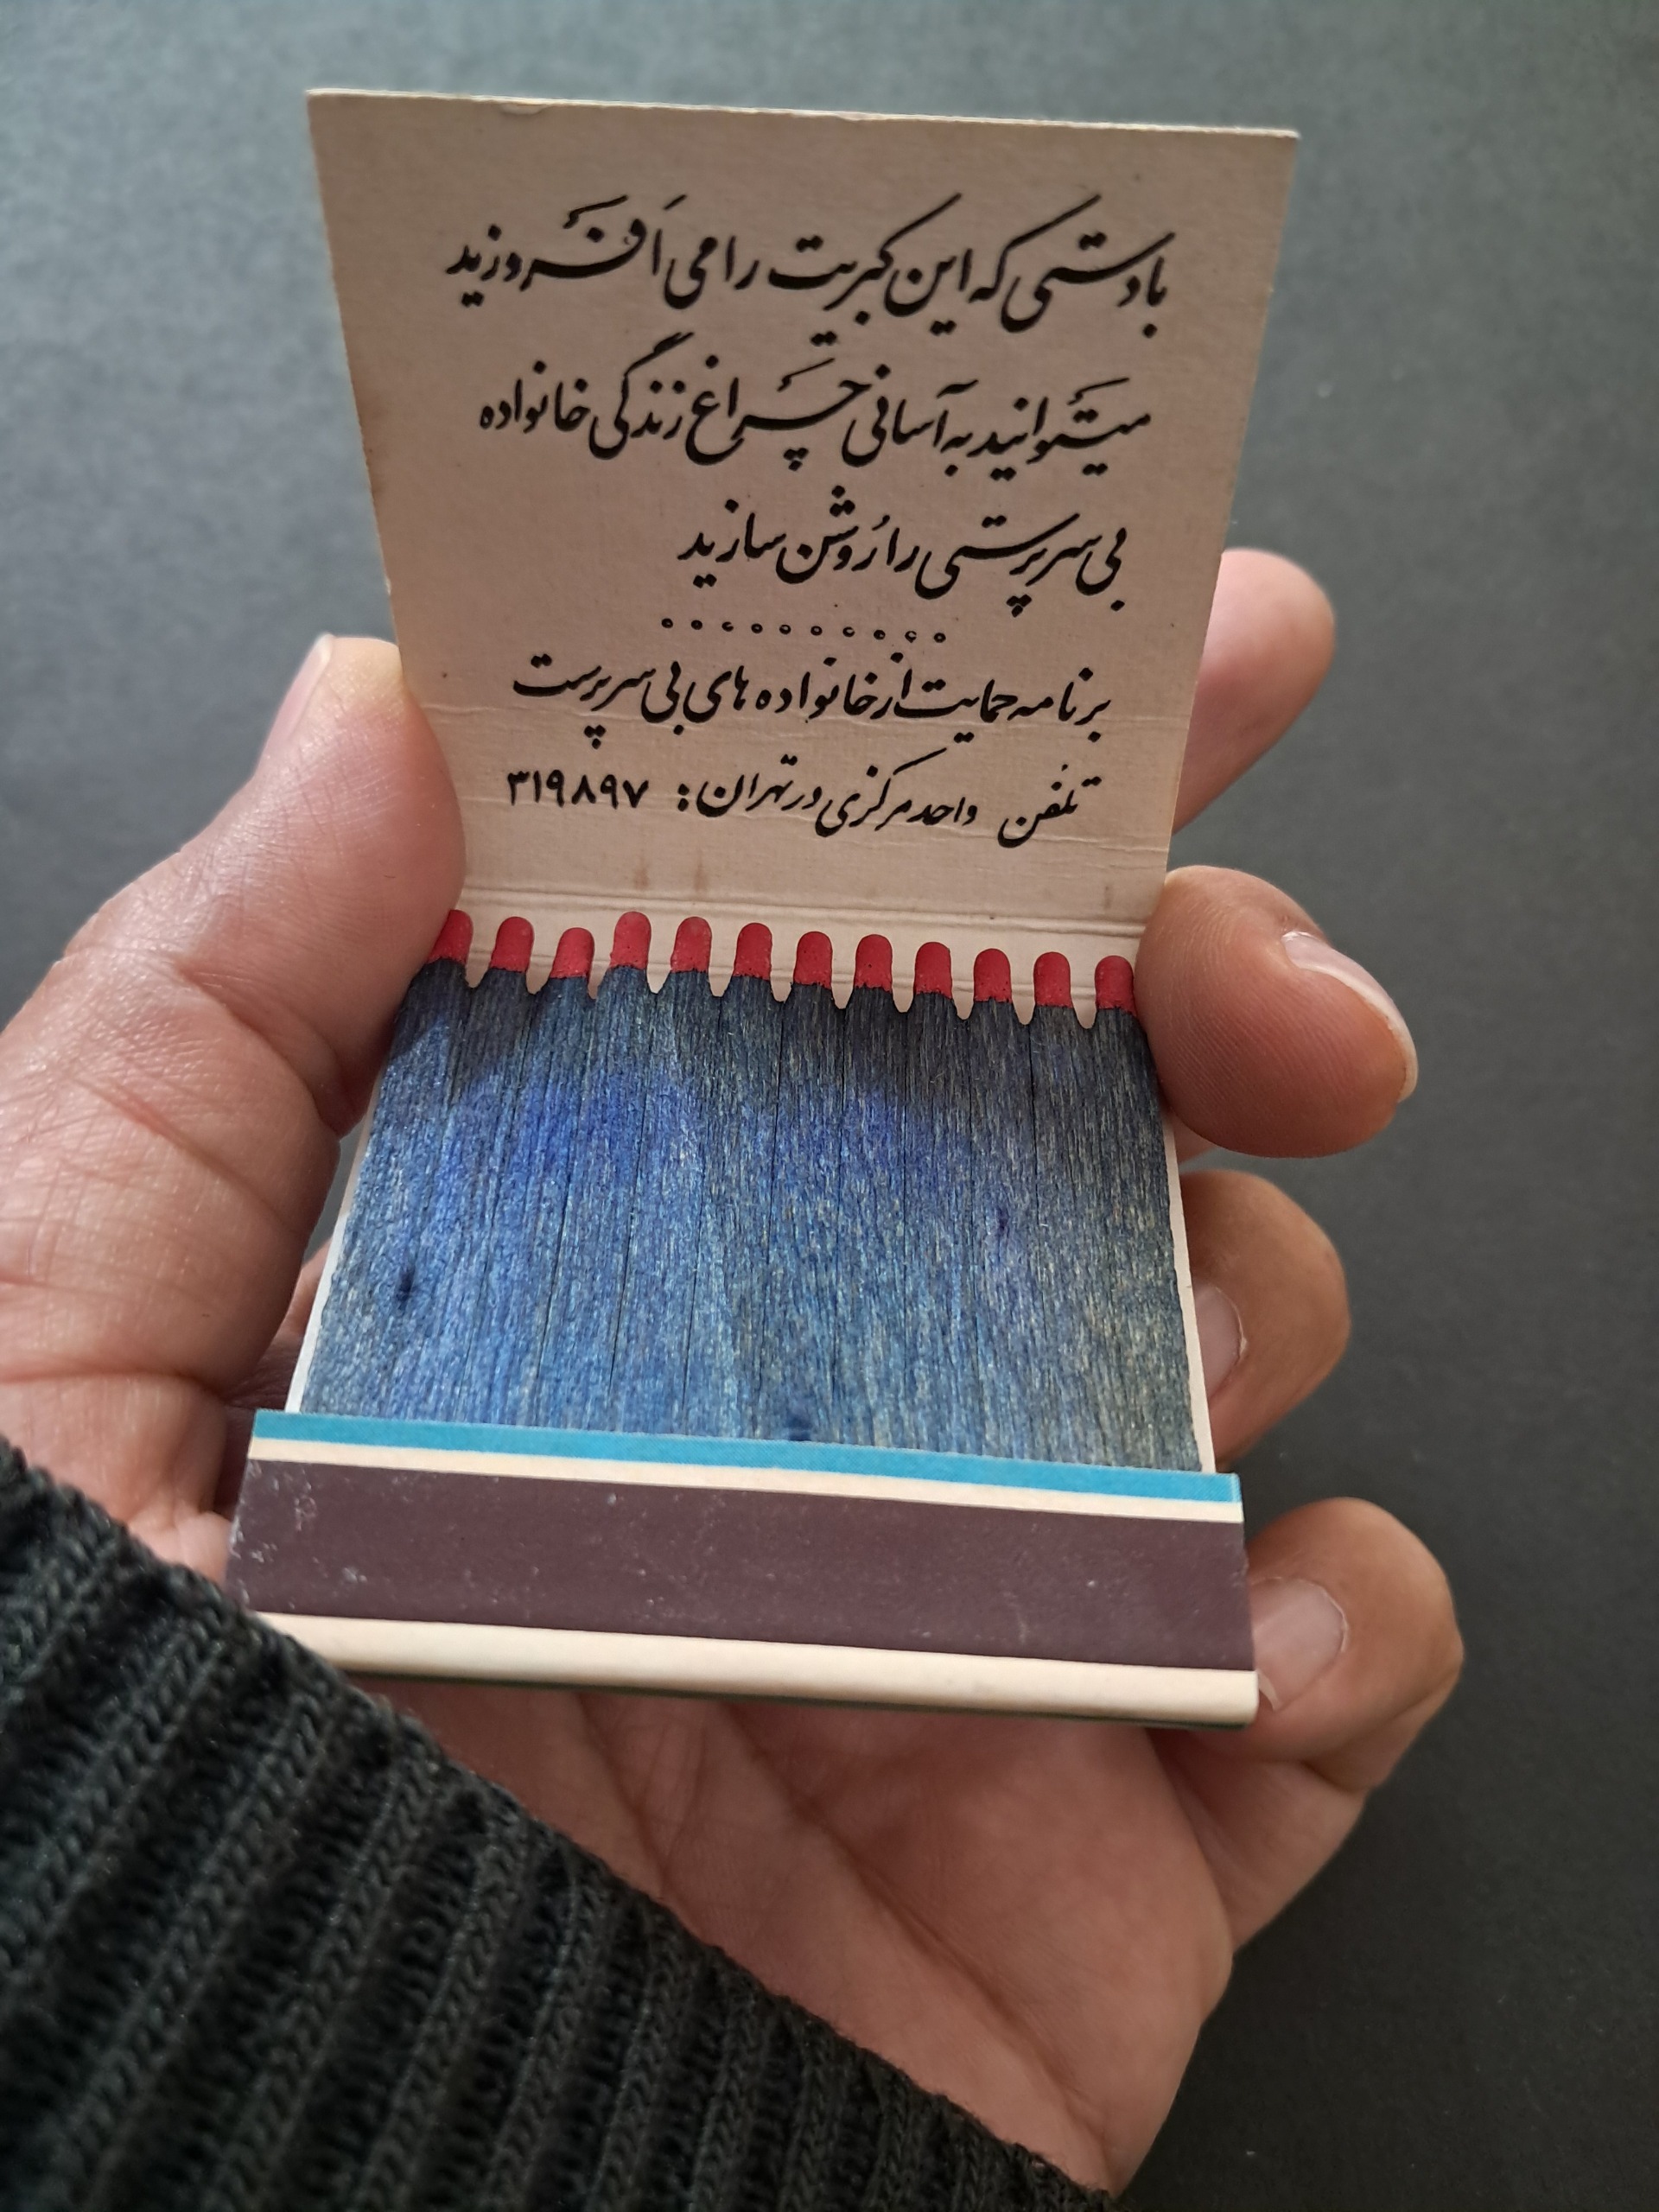 با دستی که این کبریت را می اَفَروزید
میتَوانید به آسانی چَراغ زندگی خانواده
بی سرپرستی را رُوشن سازید
برنامه حمایت از خانواده های بی سرپرست
تلفن واحد مرکزی در تهران: ۳۱۹۸۹۷